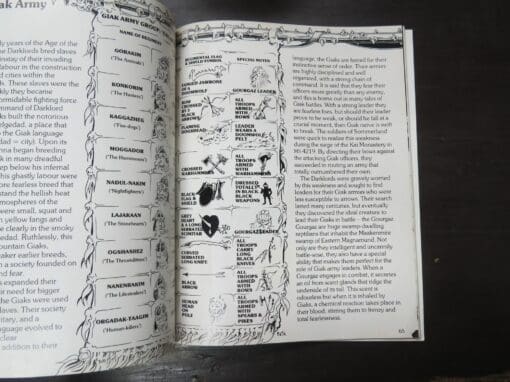 iak Army
ly years of the Age of
the Darklords bred slaves
instay of their invading
labour in the construction
d cities within the
These slaves were the
kly they became
formidable fighting force
mmand of Darklord
built the notorious
gedad, a place that
to the Giak language
= city). Upon its
nna began breeding
k in many dreadful
eep below his infernal
this ghastly labour were
ore fearless breed that
stand the hellish heat
mospheres of the
were small, squat and
yellow fangs and
e clearly in the smoky
edad. Ruthlessly, this
ountain Giaks.
eaker earlier breeds,
a society founded on
nd fear.
s expanded their
need for bigger
the Giaks were used
slaves. Their society
itary, and a
nguage evolved to
addition to their
GIAK ARMY GROUP
NAME OF REGIMENT
GORAKIM
(The 'Animals')
KONKORIM
(The 'Hunters')
KAGGAZHEG
('Fire-dogs')
MOGGADOR
NADUL-NARIN
('Nightfighters')
LAJAKAAN
(The 'Stonehearts')
OGSHASHEZ
NANENRAKIM
(The 'Lifestealers')
ORGADAK-TAAGIM
('Human-killers')
REGIMENTAL FLAG
& SHIELD SYMBOL
SPECIAL NOTES
JAWBONE
OF A
DOOMWOLF
GOURGAZ LEADER
TWO
CROSSED
BLACK
ARROWS
ALL
TROOPS
ARMED
WITH
BOWS
LEADER
WEARS A
DOOMWOLF
PELT
CROSSED
ALL
TROOPS
ARMED
WITH
WARHAMMERS
BLACK
FLAG &
SHIELD
DRESSED
TOTALLY
IN BLACK,
BLACK
WEAPONS
GREY
HEART
ON A
SERRATED
SCIMITAR
GOURGAZ LEADER
CURVED
SERRATED
LONG KNIFE
ALL
TROOPS
CARRY
LONG
BLACK
KNIVES
BLACK
ARROW
ALL
TROOPS
ARMED
WITH
BOWS
HUMAN
HEAD
ON A
POLE
ALL
TROOPS
ARMED
WITH
SPEARS &
PIKES
language, the Giaks are famed for their
instinctive sense of order. Their armies
are highly disciplined and well
organised, with a strong chain of
command. It is said that they fear their
officers more greatly than any enemy,
and this is borne out in many tales of
Giak battles. With a strong leader they
are fearless foes, but should their leader
prove to be weak, or should he fall at a
crucial moment, then Giak nerve is swift
to break. The soldiers of Sommerlund
were quick to realise this weakness
during the siege of the Kai Monastery in
MS 4219. By directing their bows against
the attacking Giak officers, they
succeeded in routing an army that
totally outnumbered their own.
The Darklords were gravely worried
by this weakness and sought to find
leaders for their Giak armies who were
less susceptible to arrows. Their search
lasted many centuries, but eventually
they discovered the ideal creature to
lead their Giaks in battle – the Gourgaz.
Gourgaz are huge swamp-dwelling
reptilians that inhabit the Maakenmire
swamp of Eastern Magnamund. Not
only are they intelligent and uncannily
battle-wise, they also have a special
ability that makes them perfect for the
role of Giak army leaders. When a
Gourgaz engages in combat, it secretes
an oil from scent glands that ridge the
underside of its tail. This scent is
odourless but when it is inhaled by
Giaks, a chemical reaction takes place in
their blood, stirring them to frenzy and
total fearlessness.
65